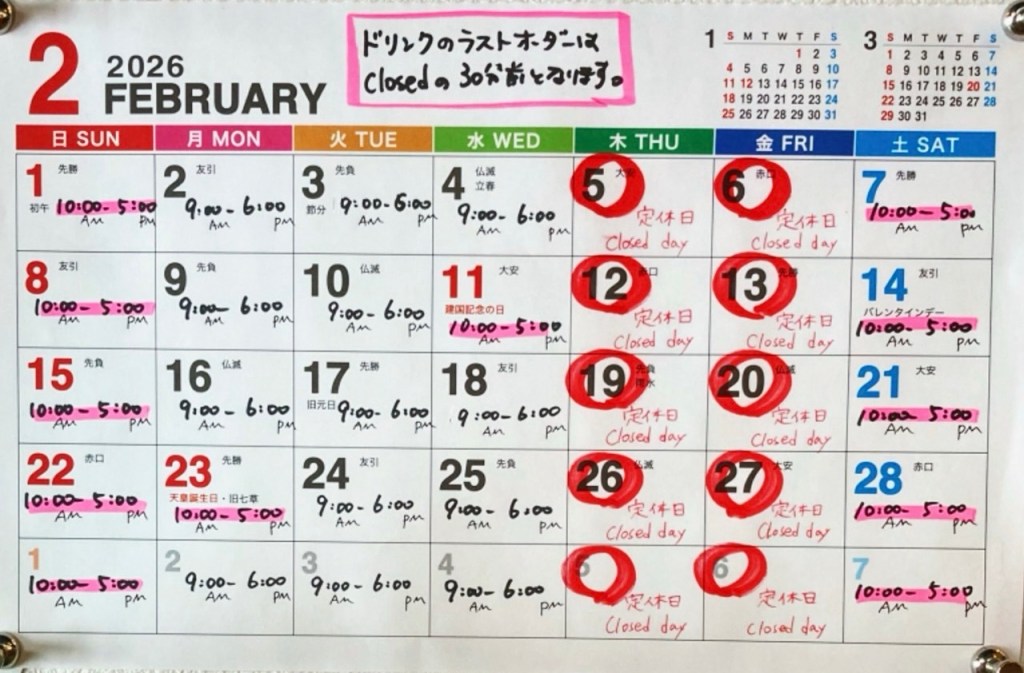 2
2026
FEBRUARY
ドリンクのラストオーダーは
Closedの30分前となります。
1
S M T W T F S
1 2 3
4 5 6 7 8 9 10
11 12 13 14 15 16 17
18 19 20 21 22 23 24
25 26 27 28 29 30 31
3
S M T W T F S
1 2 3 4 5 6 7
8 9 10 11 12 13 14
15 16 17 18 19 20 21
22 23 24 25 26 27 28
29 30 31
日 SUN 月 MON 火 TUE 水 WED 木 THU 金 FRI 土 SAT
1 先勝
初午 10:00-5:00
AM PM
2 友引
9:00-6:00
AM PM
3 先負
節分 9:00-6:00
AM PM
4 仏滅
立春
9:00-6:00
AM PM
5 大安
定休日
Closed day
6 赤口
定休日
Closed day
7 先勝
10:00-5:00
AM PM
8 友引
10:00-5:00
AM PM
9 先負
9:00-6:00
AM PM
10 仏滅
9:00-6:00
AM PM
11 大安
建国記念の日
10:00-5:00
AM PM
12
定休日
Closed day
13
定休日
Closed day
14 友引
バレンタインデー
10:00-5:00
AM PM
15 先負
10:00-5:00
AM PM
16 仏滅
9:00-6:00
AM PM
17 先勝
旧元日 9:00-6:00
AM PM
18 友引
9:00-6:00
AM PM
19 先負
雨水
定休日
Closed day
20 仏滅
定休日
Closed day
21 大安
10:00-5:00
AM PM
22 赤口
10:00-5:00
AM PM
23 先勝
天皇誕生日・旧七草
10:00-5:00
AM PM
24 友引
9:00-6:00
AM PM
25 先負
9:00-6:00
AM PM
26 仏滅
定休日
Closed day
27 大安
定休日
Closed day
28 赤口
10:00-5:00
AM PM
1
10:00-5:00
AM PM
2
9:00-6:00
AM PM
3
9:00-6:00
AM PM
4
9:00-6:00
AM PM
5
定休日
Closed day
6
定休日
Closed day
7
10:00-5:00
AM PM